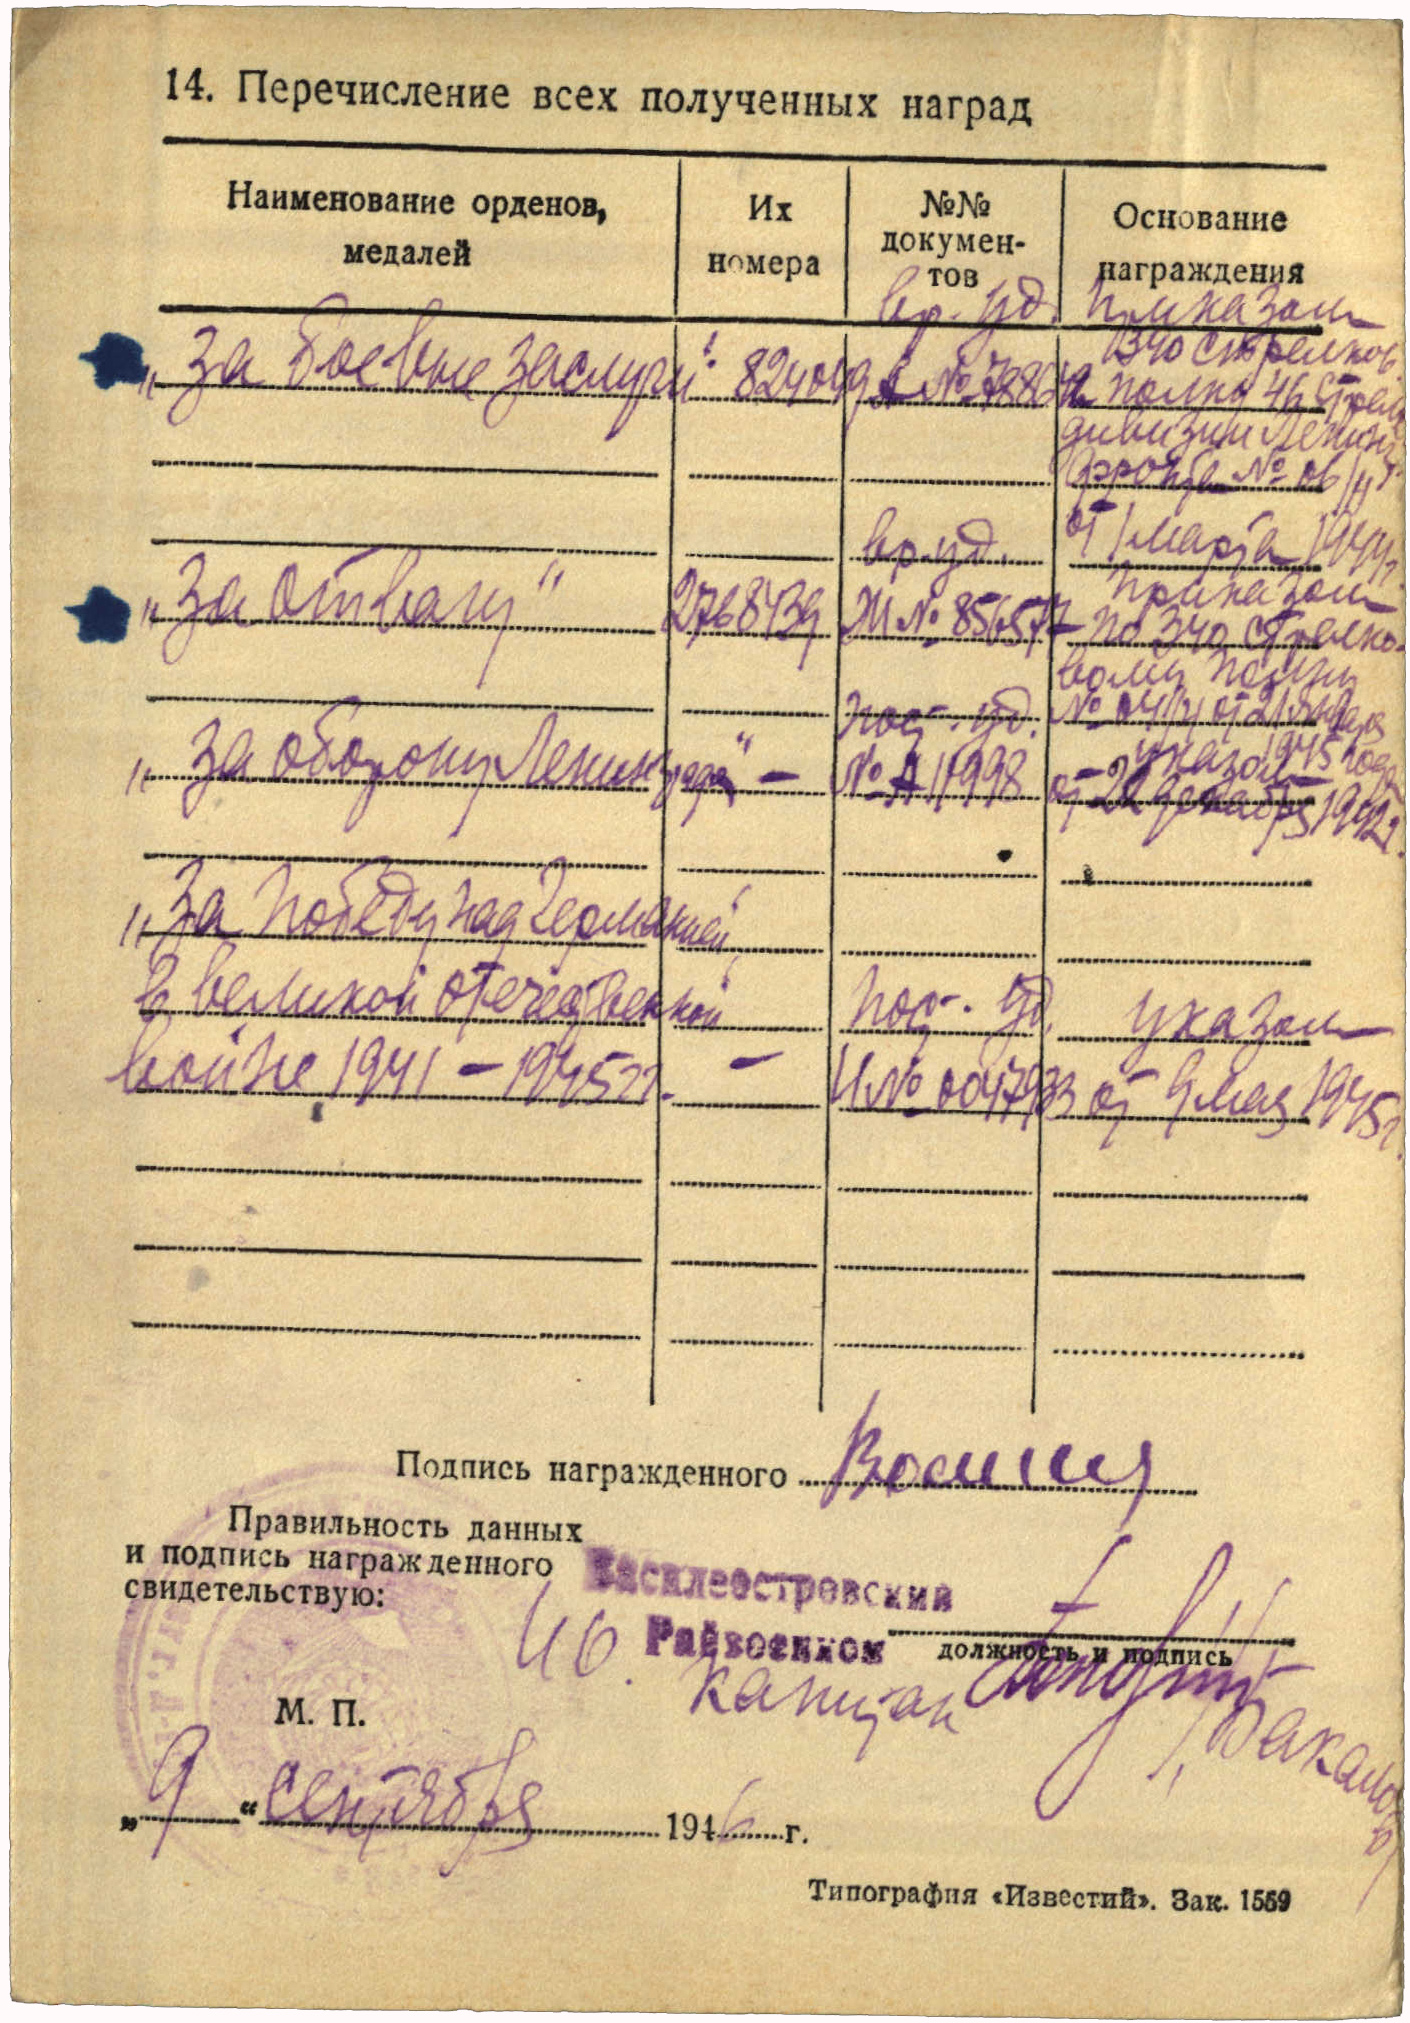 14. Перечисление всех полученных наград
Наименование орденов,
медалей
Их
номера
№№
докумен-
тов
Основание
награждения
„За боевые заслуги“
824049
вр. уд.
А № 788642
Приказом
340 стрелков.
полка 46 Стрелк
дивизии Ленинг.
фронта № 06/н
от 1 марта 1944г.
„За отвагу“
2768439
вр. уд.
Ж № 856577
Приказом
по 340 стрелко-
вому полку
№ 04/н от 21 января
1945 года
„За оборону Ленинграда“
—
пост. уд.
№ А 11998
указом
от 22 декабря 1942г.
„За победу над Германией
в великой отечественной
войне 1941 – 1945гг.
—
пост. уд.
И № 0047933
указом
от 9 мая 1945г.
Подпись награжденного
Правильность данных
и подпись награжденного
свидетельствую:
Василеостровский
Райвоенком
должность и подпись
капитан
Бакалов
М. П.
„ 9 “ сентября 1946 г.
Типография «Известий». Зак. 1559